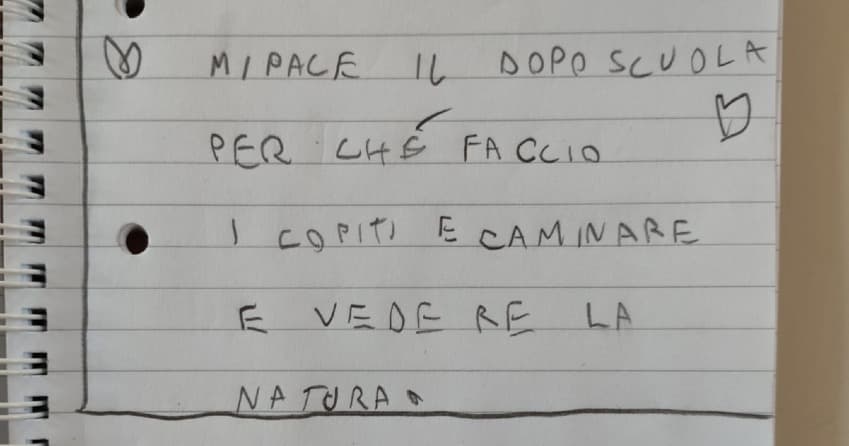 MI PACE IL DOPO SCUOLA
PER CHÉ FACCIO
I COPITI E CAMINARE
E VEDERE LA
NATURA.